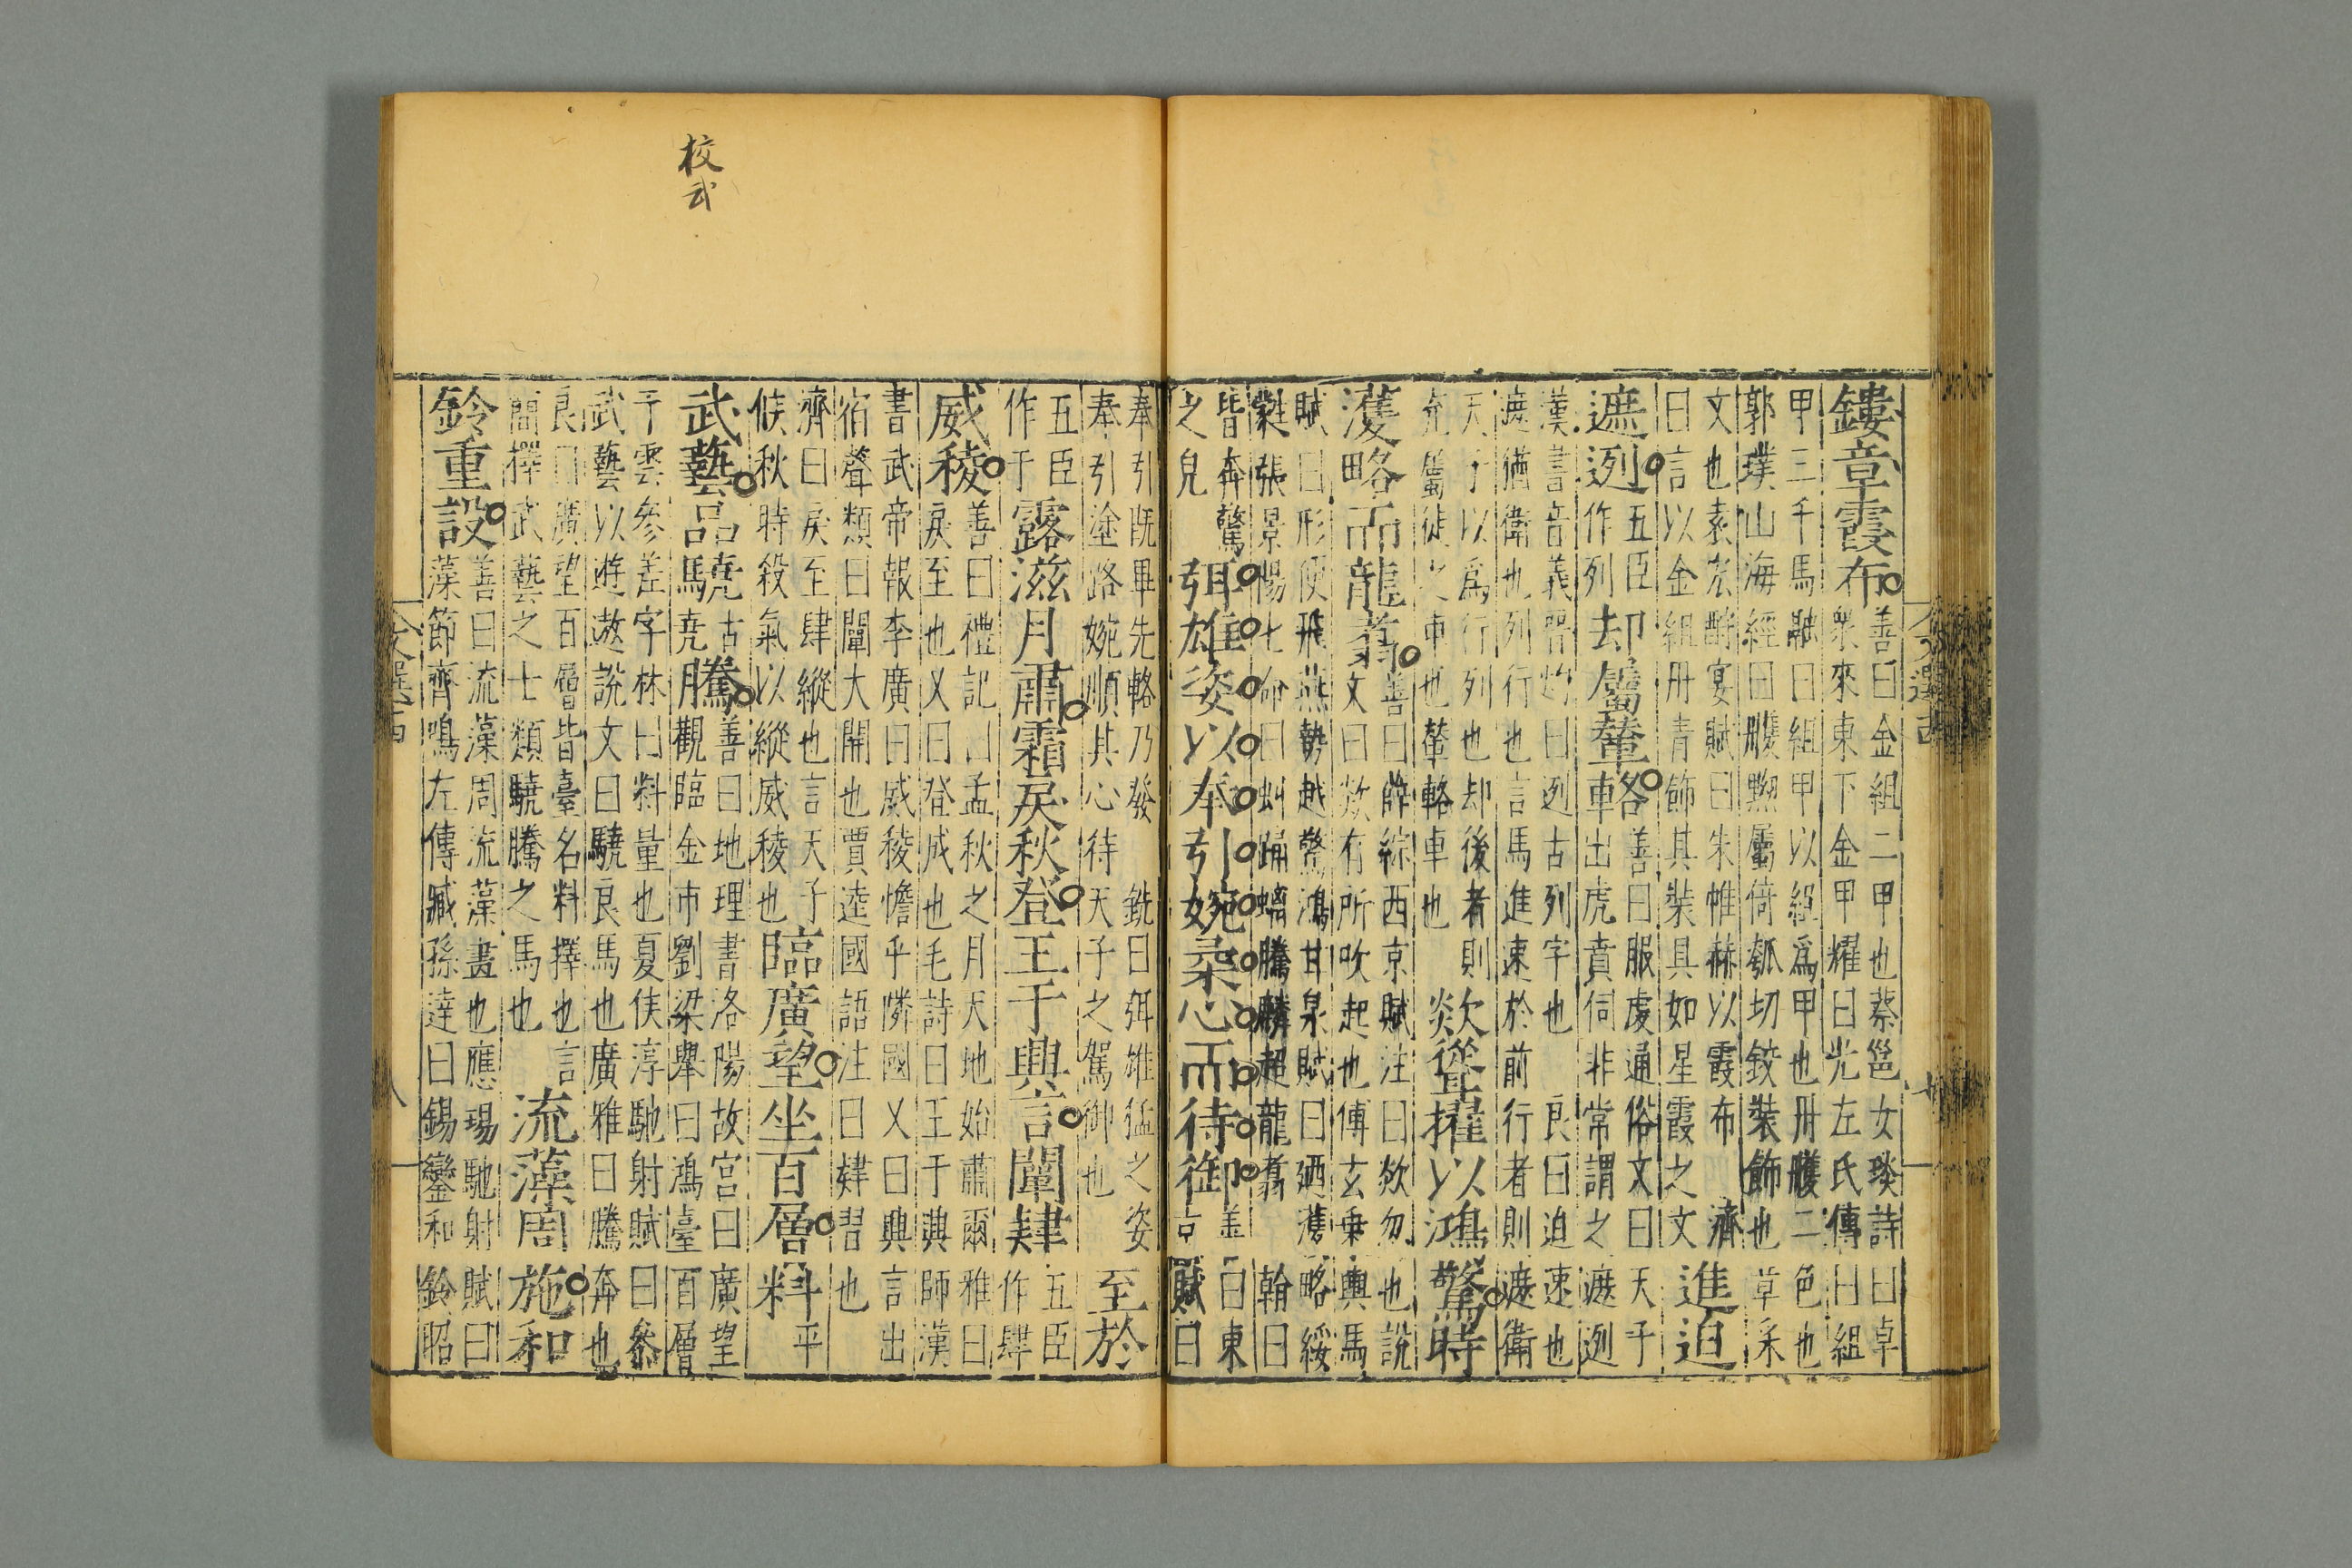 文選
鏤章霞布善曰金組二甲也蔡邕女琰詩曰卓
衆來東下金甲耀日光左氏傳曰組
甲三千馬融曰組甲以組爲甲也丹雘二色也
郭璞山海經曰雘黝屬倚瓠切鉸裝飾也草采
文也袁宏酎宴賦曰朱帷赫以霞布 濟
曰言以金組丹青飾其裝具如星霞之文 進迫
遮迾五臣作列却屬輦輅善曰服虔通俗文曰天子
出虎賁伺非常謂之遮迾
漢書音義晉灼曰迾古列字也 良曰迫速也
遮猶衛也列行也言馬進速於前行者則遮衛
天子以爲行列也却後者則
充屬徒之車也輦輅車也 欻聳擢以鴻驚時
濩略而龍翥善曰薛綜西京賦注曰欻勿也說
文曰欻有所吹起也傅玄乗輿馬
賦曰形便飛燕勢越驚鴻甘泉賦曰廼濩略綏
蕤張景陽七命曰虯踊螭騰麟超龍翥 翰曰
皆奔驚
之皃 弭雄姿以奉引婉柔心而待御善曰東
京賦曰
校武
奉引旣畢先輅乃發 銑曰弭雄猛之姿
奉引塗路婉順其心待天子之駕御也 至於
五臣作于露滋月肅霜戾秋登王于興言闡肄五臣作肆
威稜善曰禮記曰孟秋之月天地始肅爾雅曰
戾至也又曰登成也毛詩曰王于興師漢
書武帝報李廣曰威稜憺乎憐國又曰興言出
宿聲類曰闡大開也賈逵國語注曰肄習也
濟曰戾至肆縱也言天子
候秋時殺氣以縱威稜也 臨廣望坐百層料平
武藝品驍古堯騰善曰地理書洛陽故宮曰廣望
觀臨金市劉梁舉曰鴻臺百層
千雲參差字林曰料量也夏侯淳馳射賦曰參
武藝以遊遨說文曰驍良馬也廣雅曰騰奔也
良曰廣望百層皆臺名料擇也言
簡擇武藝之士類驍騰之馬也 流藻周施和
鈴重設善曰流藻周流藻畫也應瑒馳射賦曰
藻節齊鳴左傳臧孫達曰錫鑾和鈴昭
八